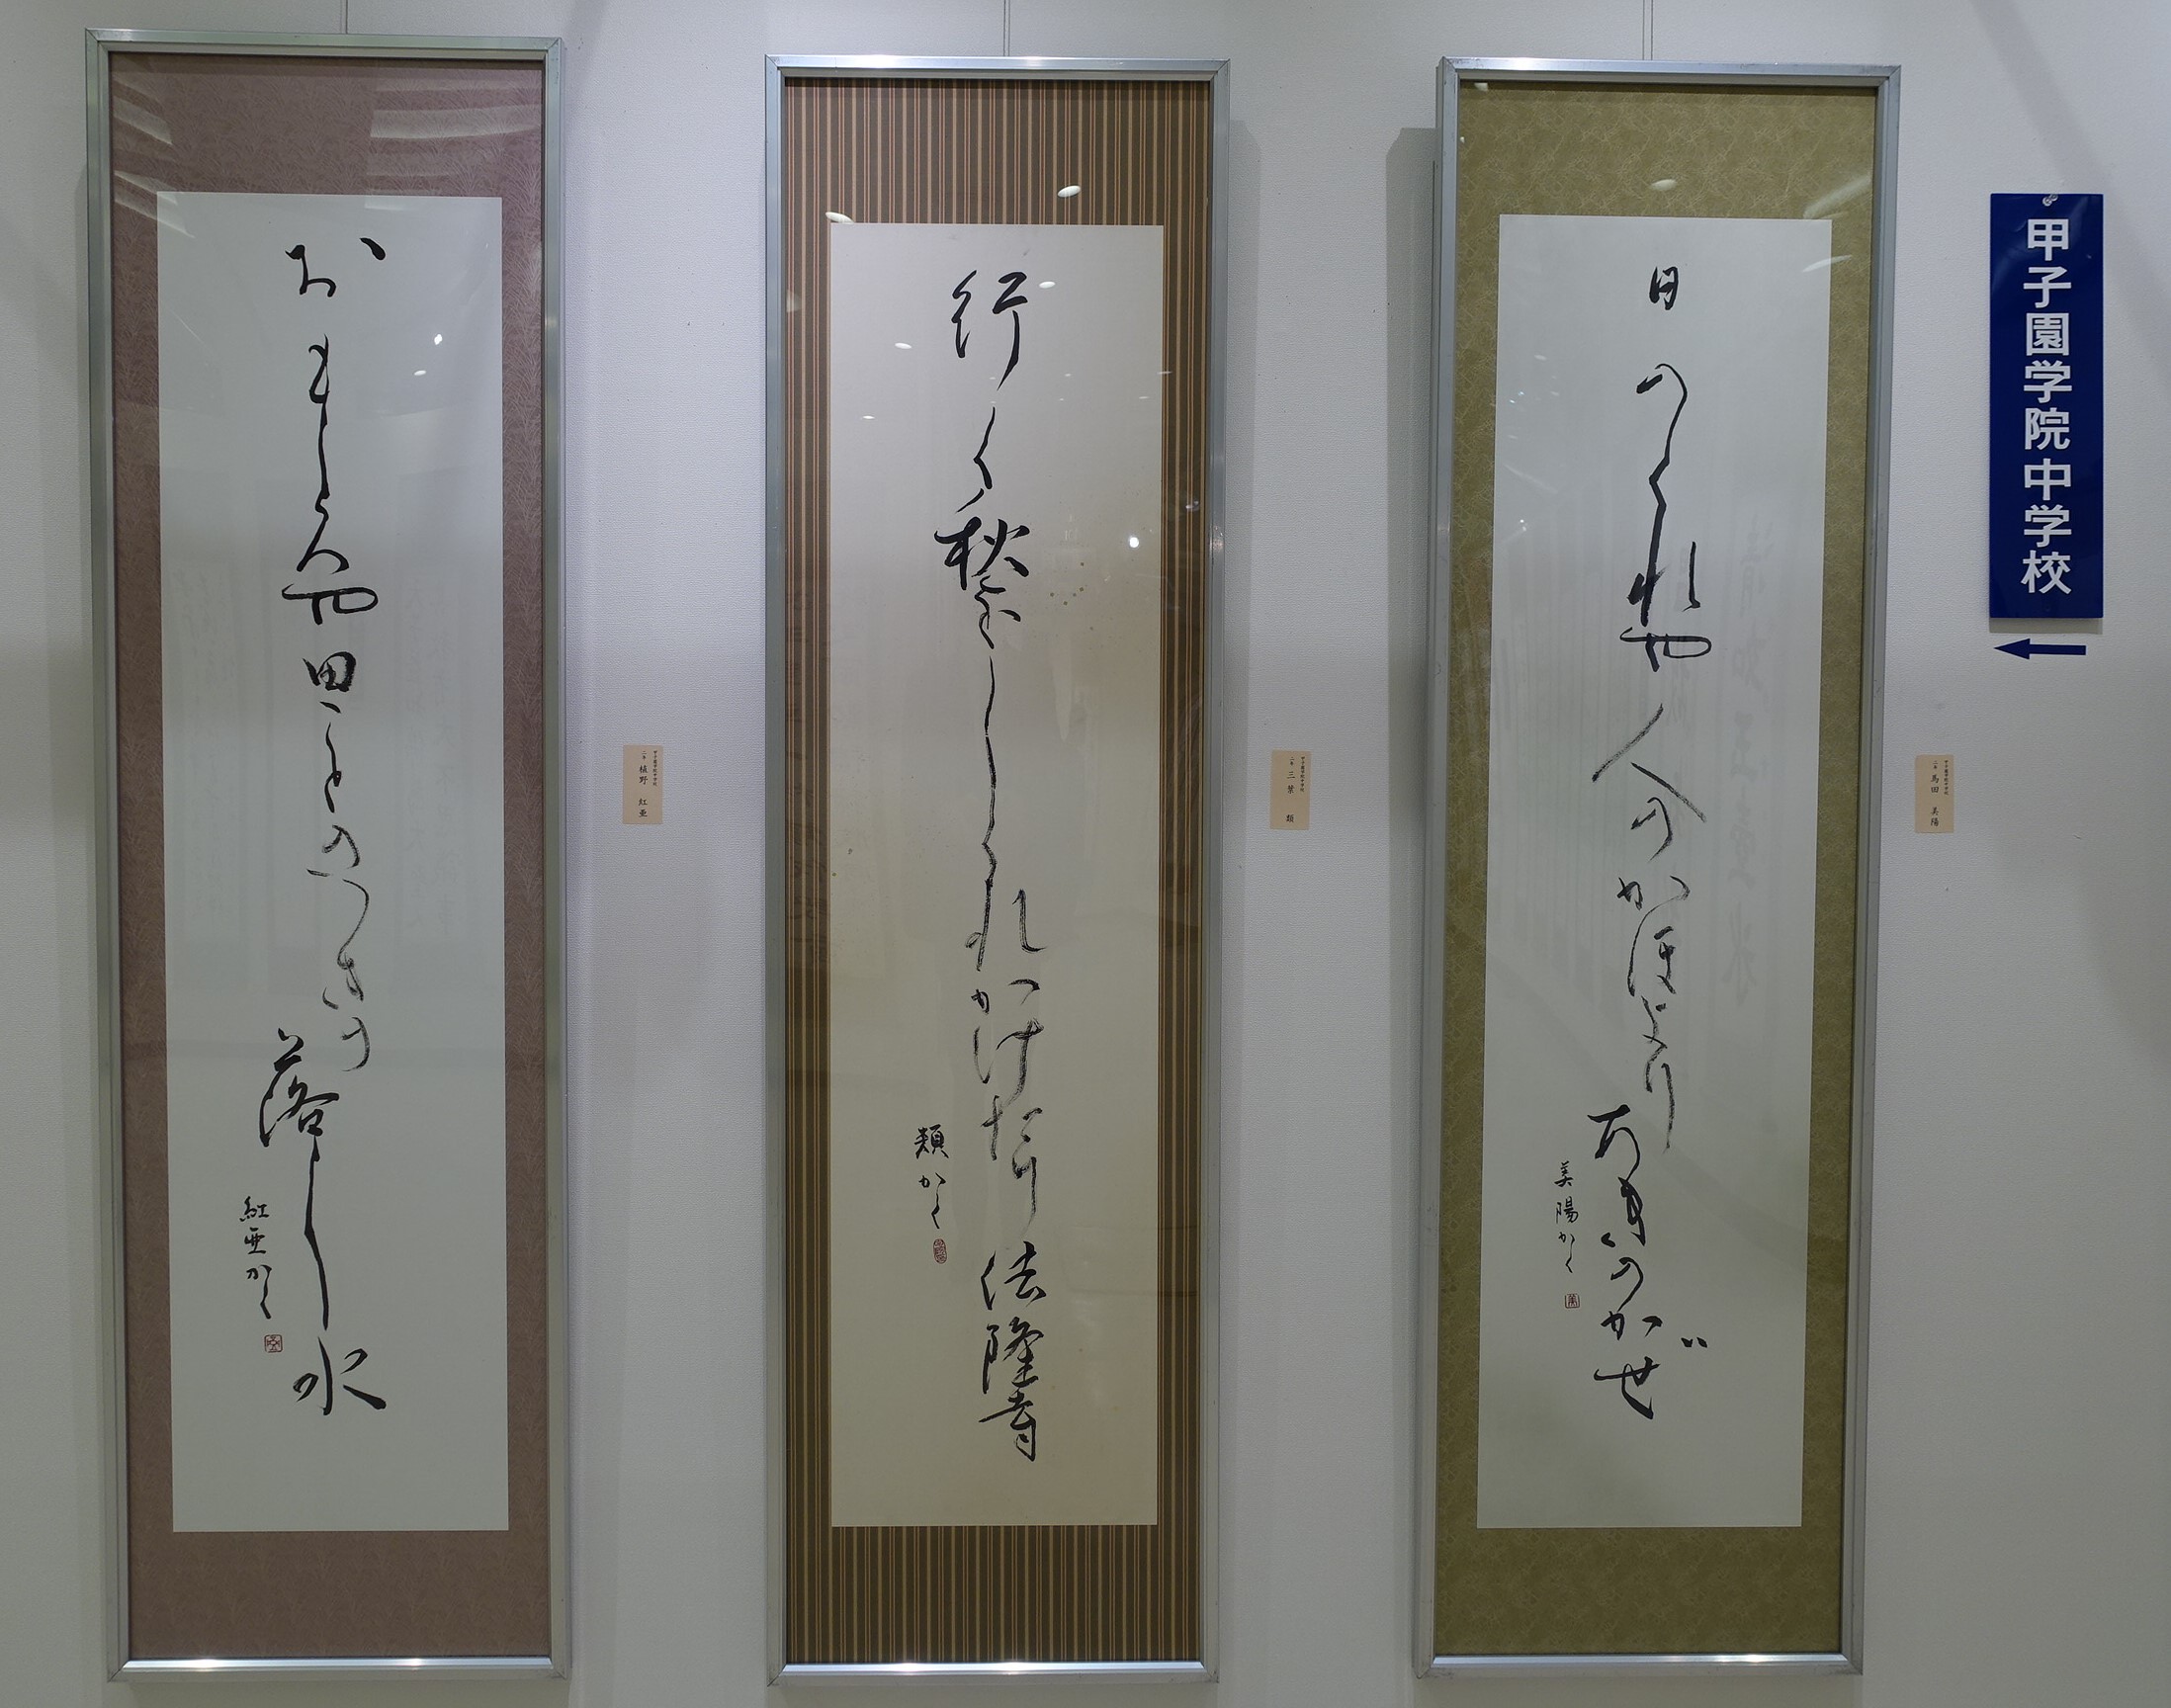 甲子園学院中学校
日のくれや人のかほよりあきのかぜ
美陽かく
甲子園学院中学校
二年 馬田 美陽
行く秋をしくれかけたり法隆寺
類かく
甲子園学院中学校
二年 三葉 類
おもしろや田ことのつきの落し水
紅亜かく
甲子園学院中学校
二年 植野 紅亜